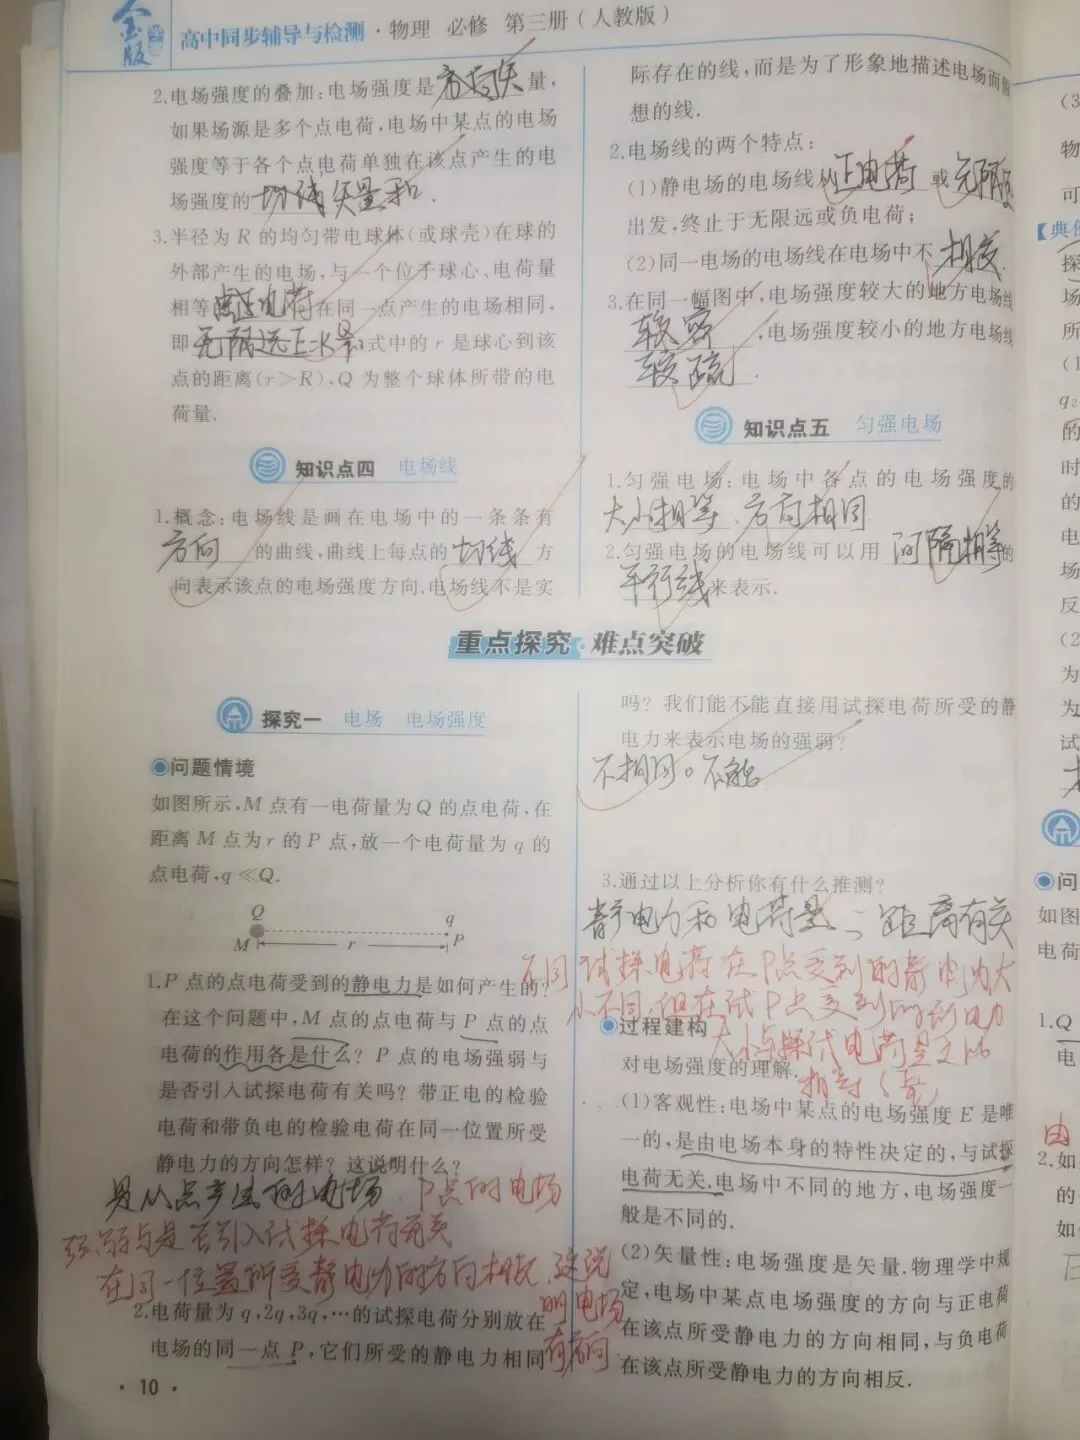 金版
高中同步辅导与检测·物理 必修 第三册(人教版)
2.电场强度的叠加:电场强度是 方向矢 量,
如果场源是多个点电荷,电场中某点的电场
强度等于各个点电荷单独在该点产生的电
场强度的 切线矢量和.
3.半径为 R 的均匀带电球体(或球壳)在球的
外部产生的电场,与一个位于球心、电荷量
相等 电荷 在同一点产生的电场相同,
即 式中的 r 是球心到该
点的距离(r>R),Q 为整个球体所带的电
荷量.
知识点四 电场线
1.概念:电场线是画在电场中的一条条有
方向 的曲线,曲线上每点的 切线 方
向表示该点的电场强度方向.电场线不是实
际存在的线,而是为了形象地描述电场而假
想的线.
2.电场线的两个特点:
(1)静电场的电场线从 正电荷 或 无限远
出发,终止于无限远或负电荷;
(2)同一电场的电场线在电场中不 相交.
3.在同一幅图中,电场强度较大的地方电场线
较密,电场强度较小的地方电场线
较疏.
知识点五 匀强电场
1.匀强电场:电场中各点的电场强度的
大小相等、方向相同
2.匀强电场的电场线可以用 间隔相等的
平行线 来表示.
重点探究·难点突破
探究一 电场 电场强度
问题情境
如图所示,M 点有一电荷量为 Q 的点电荷,在
距离 M 点为 r 的 P 点,放一个电荷量为 q 的
点电荷,q≪Q.
Q q
M r P
1.P 点的点电荷受到的静电力是如何产生的?
在这个问题中,M 点的点电荷与 P 点的点
电荷的作用各是什么? P 点的电场强弱与
是否引入试探电荷有关吗? 带正电的检验
电荷和带负电的检验电荷在同一位置所受
静电力的方向怎样? 这说明什么?
是从点产生的电场. P点的电场
强弱与是否引入试探电荷无关
在同一位置所受静电力的方向相反,这说
明电场
有方向
2.电荷量为 q,2q,3q,…的试探电荷分别放在
电场的同一点 P,它们所受的静电力相同
吗? 我们能不能直接用试探电荷所受的静
电力来表示电场的强弱?
不相同。不能
3.通过以上分析你有什么推测?
静电力和电荷量、距离有关
不同试探电荷在P点受到的静电力大
小不同,但在 P点受到的 电力
大小与 电荷量之比
相等
过程建构
对电场强度的理解.
(1)客观性:电场中某点的电场强度 E 是唯
一的,是由电场本身的特性决定的,与试探
电荷无关.电场中不同的地方,电场强度一
般是不同的.
(2)矢量性:电场强度是矢量.物理学中规
定,电场中某点电场强度的方向与正电荷
在该点所受静电力的方向相同,与负电荷
在该点所受静电力的方向相反.
·10·